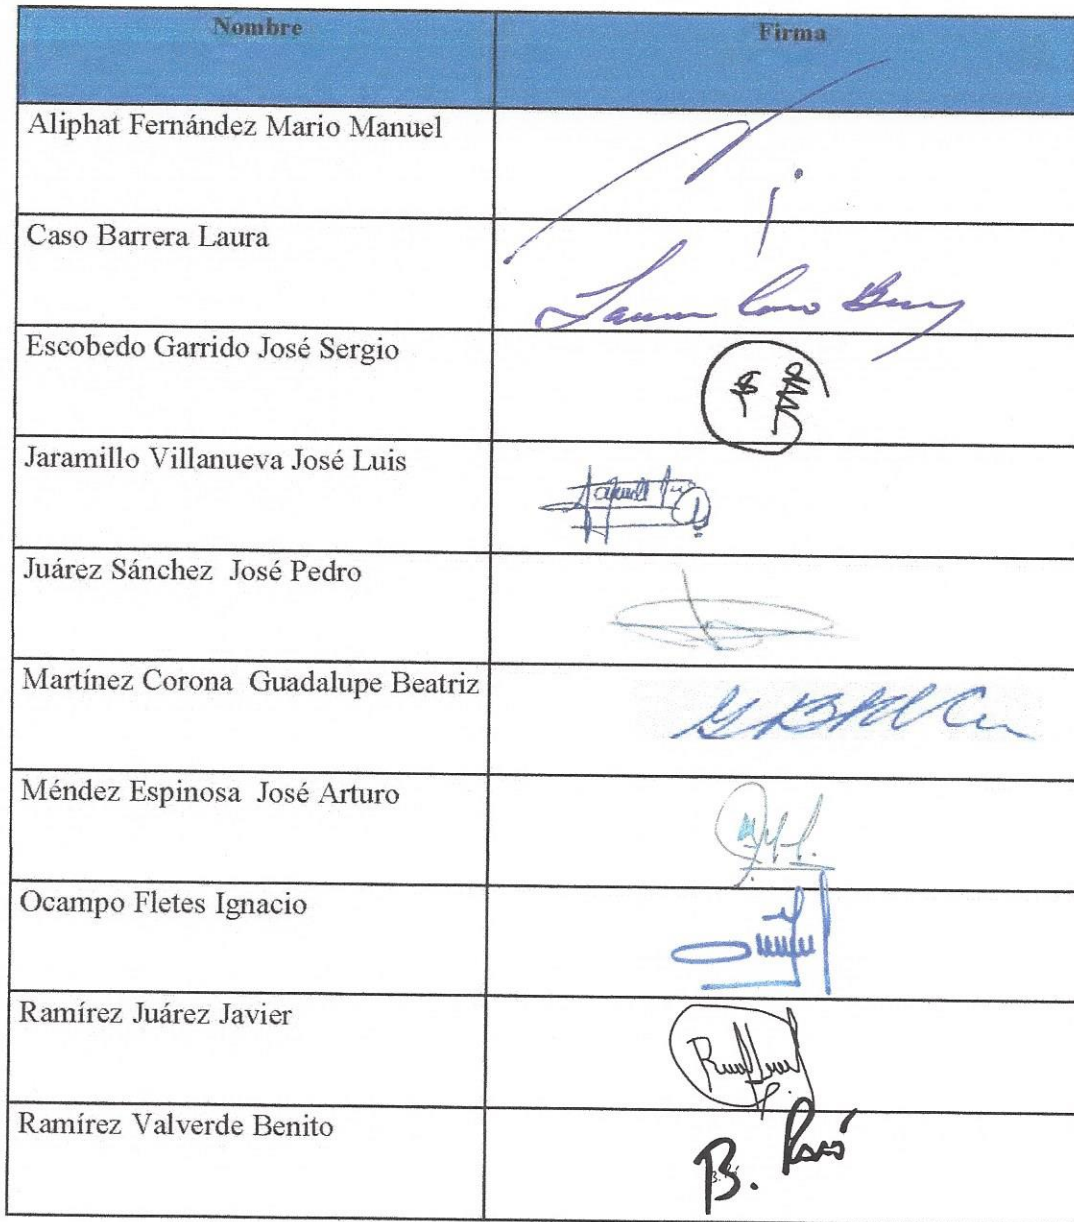 Nombre Firma
Aliphat Fernández Mario Manuel
Caso Barrera Laura
Escobedo Garrido José Sergio
Jaramillo Villanueva José Luis
Juárez Sánchez José Pedro
Martínez Corona Guadalupe Beatriz
Méndez Espinosa José Arturo
Ocampo Fletes Ignacio
Ramírez Juárez Javier
Ramírez Valverde Benito
B.